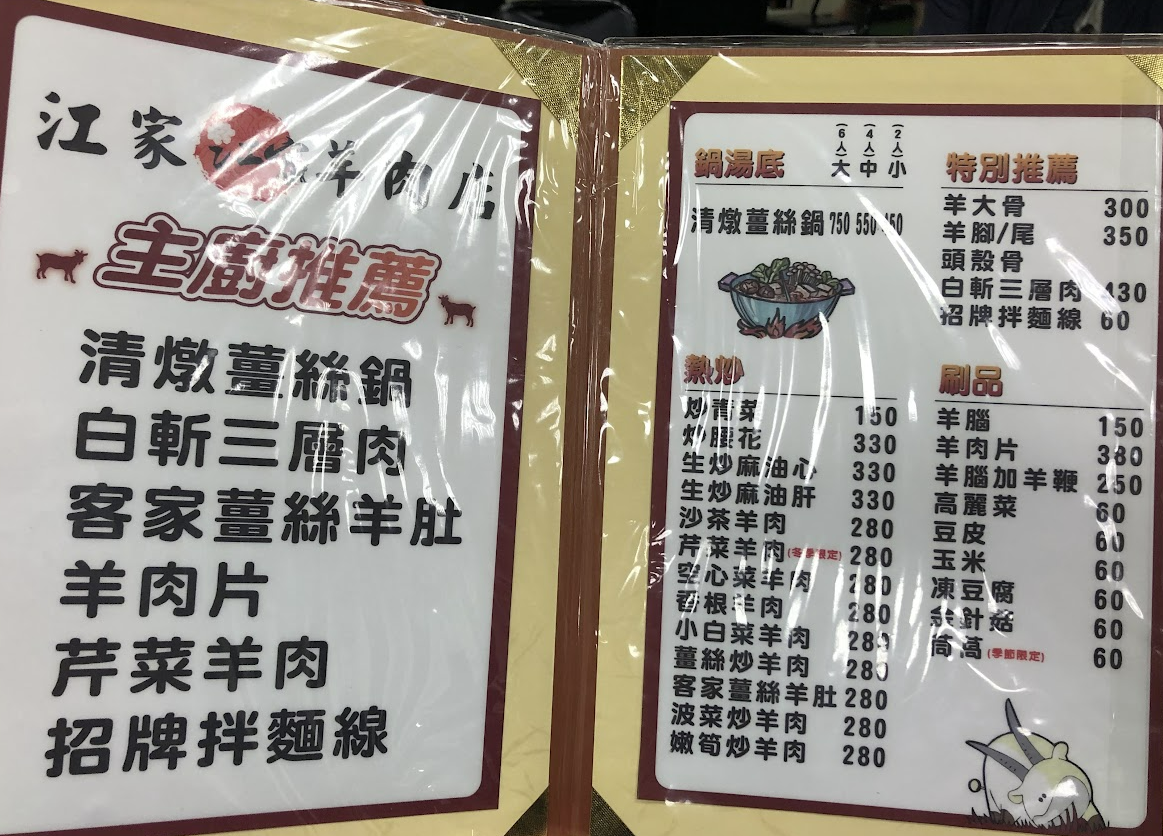 江家羊肉店
主廚推薦
清燉薑絲鍋
白斬三層肉
客家薑絲羊肚
羊肉片
芹菜羊肉
招牌拌麵線
鍋湯底 (6人)大 (4人)中 (2人)小
清燉薑絲鍋 750 550 450
熱炒
炒青菜 150
炒腰花 330
生炒麻油心 330
生炒麻油肝 330
沙茶羊肉 280
芹菜羊肉(冬季限定) 280
空心菜羊肉 280
香根羊肉 280
小白菜羊肉 280
薑絲炒羊肉 280
客家薑絲羊肚 280
波菜炒羊肉 280
嫩筍炒羊肉 280
特別推薦
羊大骨 300
羊腳/尾 350
頭殼骨
白斬三層肉 430
招牌拌麵線 60
刷品
羊腦 150
羊肉片 380
羊腦加羊鞭 250
高麗菜 60
豆皮 60
玉米 60
凍豆腐 60
金針菇 60
茼萵(季節限定) 60